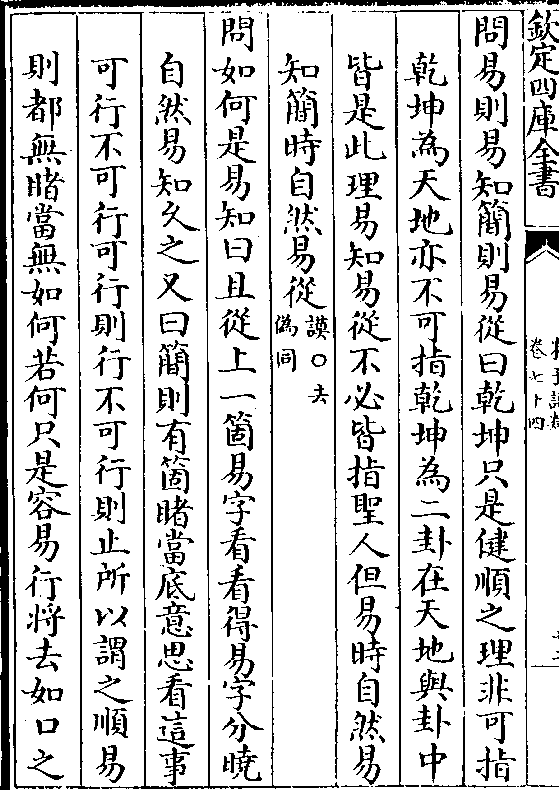 欽定四庫全書
卷七十四
問易則易知簡則易從曰乾坤只是健順之理非可指
乾坤為天地亦不可指乾坤為二卦在天地與卦中
皆是此理易知易從不必皆指聖人但易時自然易
知簡時自然易從
謨○去
偽同
問如何是易知曰且從上一箇易字看看得易字分曉
自然易知久之又曰簡則有箇睹當底意思看這事
可行不可行可行則行不可行則止所以謂之順易
則都無睹當無如何若何只是容易行將去如口之